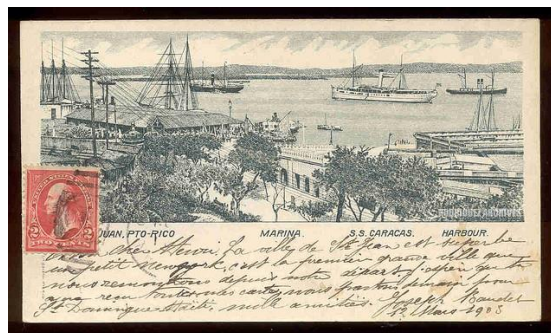 RODRIGUEZ ARCHIVES
JUAN, PTO-RICO MARINA. S.S. CARACAS. HARBOUR.
2 2
TWO CENTS
cher Henri. La ville de St Jean est superbe
un petit Newyork, c'est la première grande ville que
nous rencontrons depuis notre départ. J'espère que tu
reçu toutes mes cartes, nous partons demain pour
St Domingue Haïti, mille amitiés. Joseph
Mars 1903